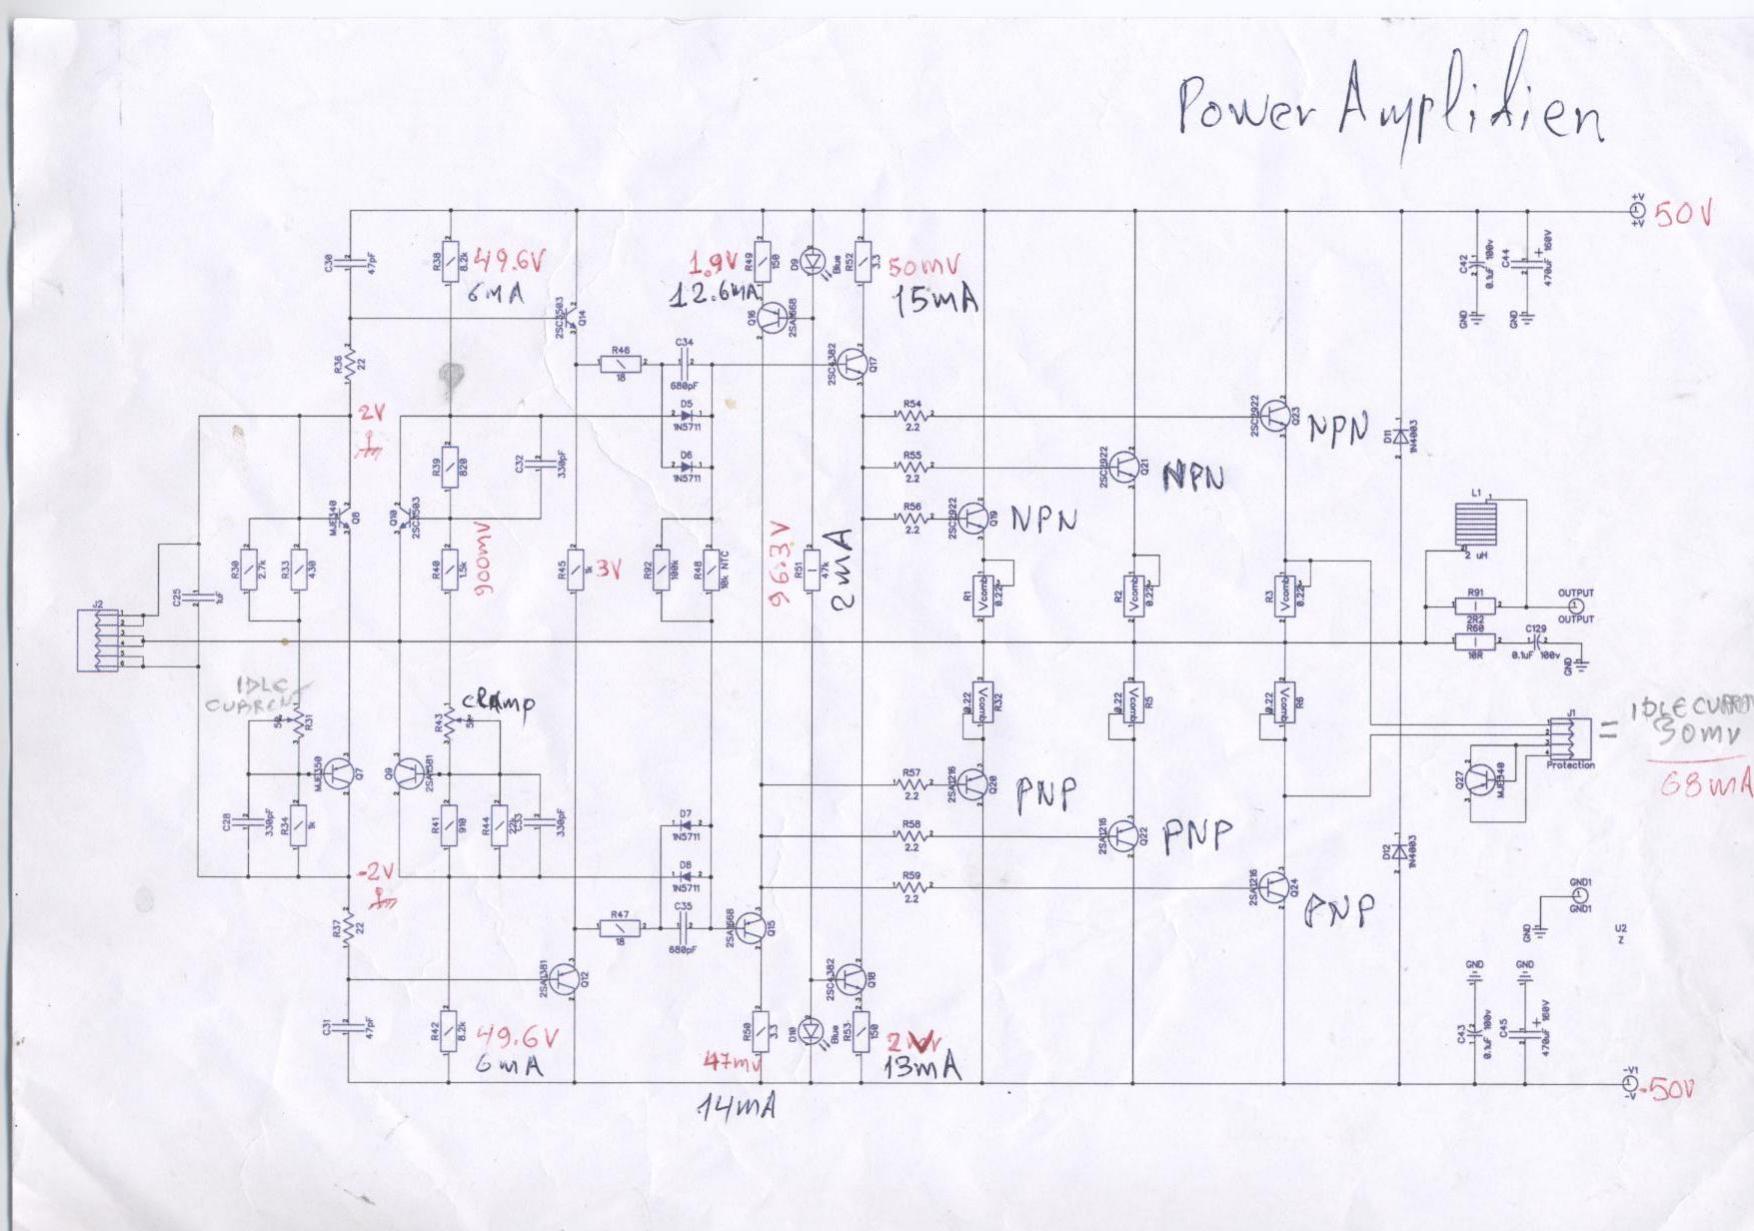 Power Amplidien
+V
+V
50V
C30
47pF
R38
8.2k
49.6V
6mA
2SC3503
Q14
1.9V
12.6mA
R49
150
Q16
2SA1668
D9
Blue
R52
3.3
50mV
15mA
C42
0.1uF 100v
GND
C44
470uF 160V
GND
R36
22
R46
C34
680pF
2SC4382
Q17
2V
D5
1N5711
D6
1N5711
R54
2.2
R55
2.2
R56
2.2
2SC2922
Q23
NPN
2SC2922
Q21
NPN
2SC2922
Q19
NPN
D11
1N4003
R39
820
C32
330pF
MJE340
Q8
Q10
2SC3503
R30
2.7k
R33
430
R40
1.5k
900mV
R45
1k
3V
R92
100k
R48
10k NTC
96.3V
R51
47k
2mA
R1
Vcomb
0.22
R2
Vcomb
0.22
R3
Vcomb
0.22
L1
2 uH
R91
2R2
R60
10R
C129
0.1uF 100v
GND
OUTPUT
OUTPUT
C25
1uF
IDLE
CURREN
R31
R43
CRAmp
0.22
Vcomb
R32
0.22
Vcomb
R5
0.22
Vcomb
R6
Protection
= IDLE CURRENT
30mV
68mA
MJE350
Q7
Q9
2SA1381
C28
330pF
R34
1k
R41
910
R44
C33
330pF
D7
1N5711
D8
1N5711
R57
2.2
R58
2.2
R59
2.2
2SA1216
Q20
PNP
2SA1216
Q22
PNP
2SA1216
Q24
PNP
Q27
MJE340
D12
1N4003
-2V
R37
22
R47
C35
680pF
2SA1668
Q15
GND1
GND1
GND
U2
Z
2SA1381
Q12
2SC4382
Q18
C31
47pF
R42
8.2k
49.6V
6mA
R50
3.3
47mV
14mA
D10
Blue
R53
150
13mA
GND
C43
0.1uF 100v
GND
C45
470uF 160V
-V
-50V